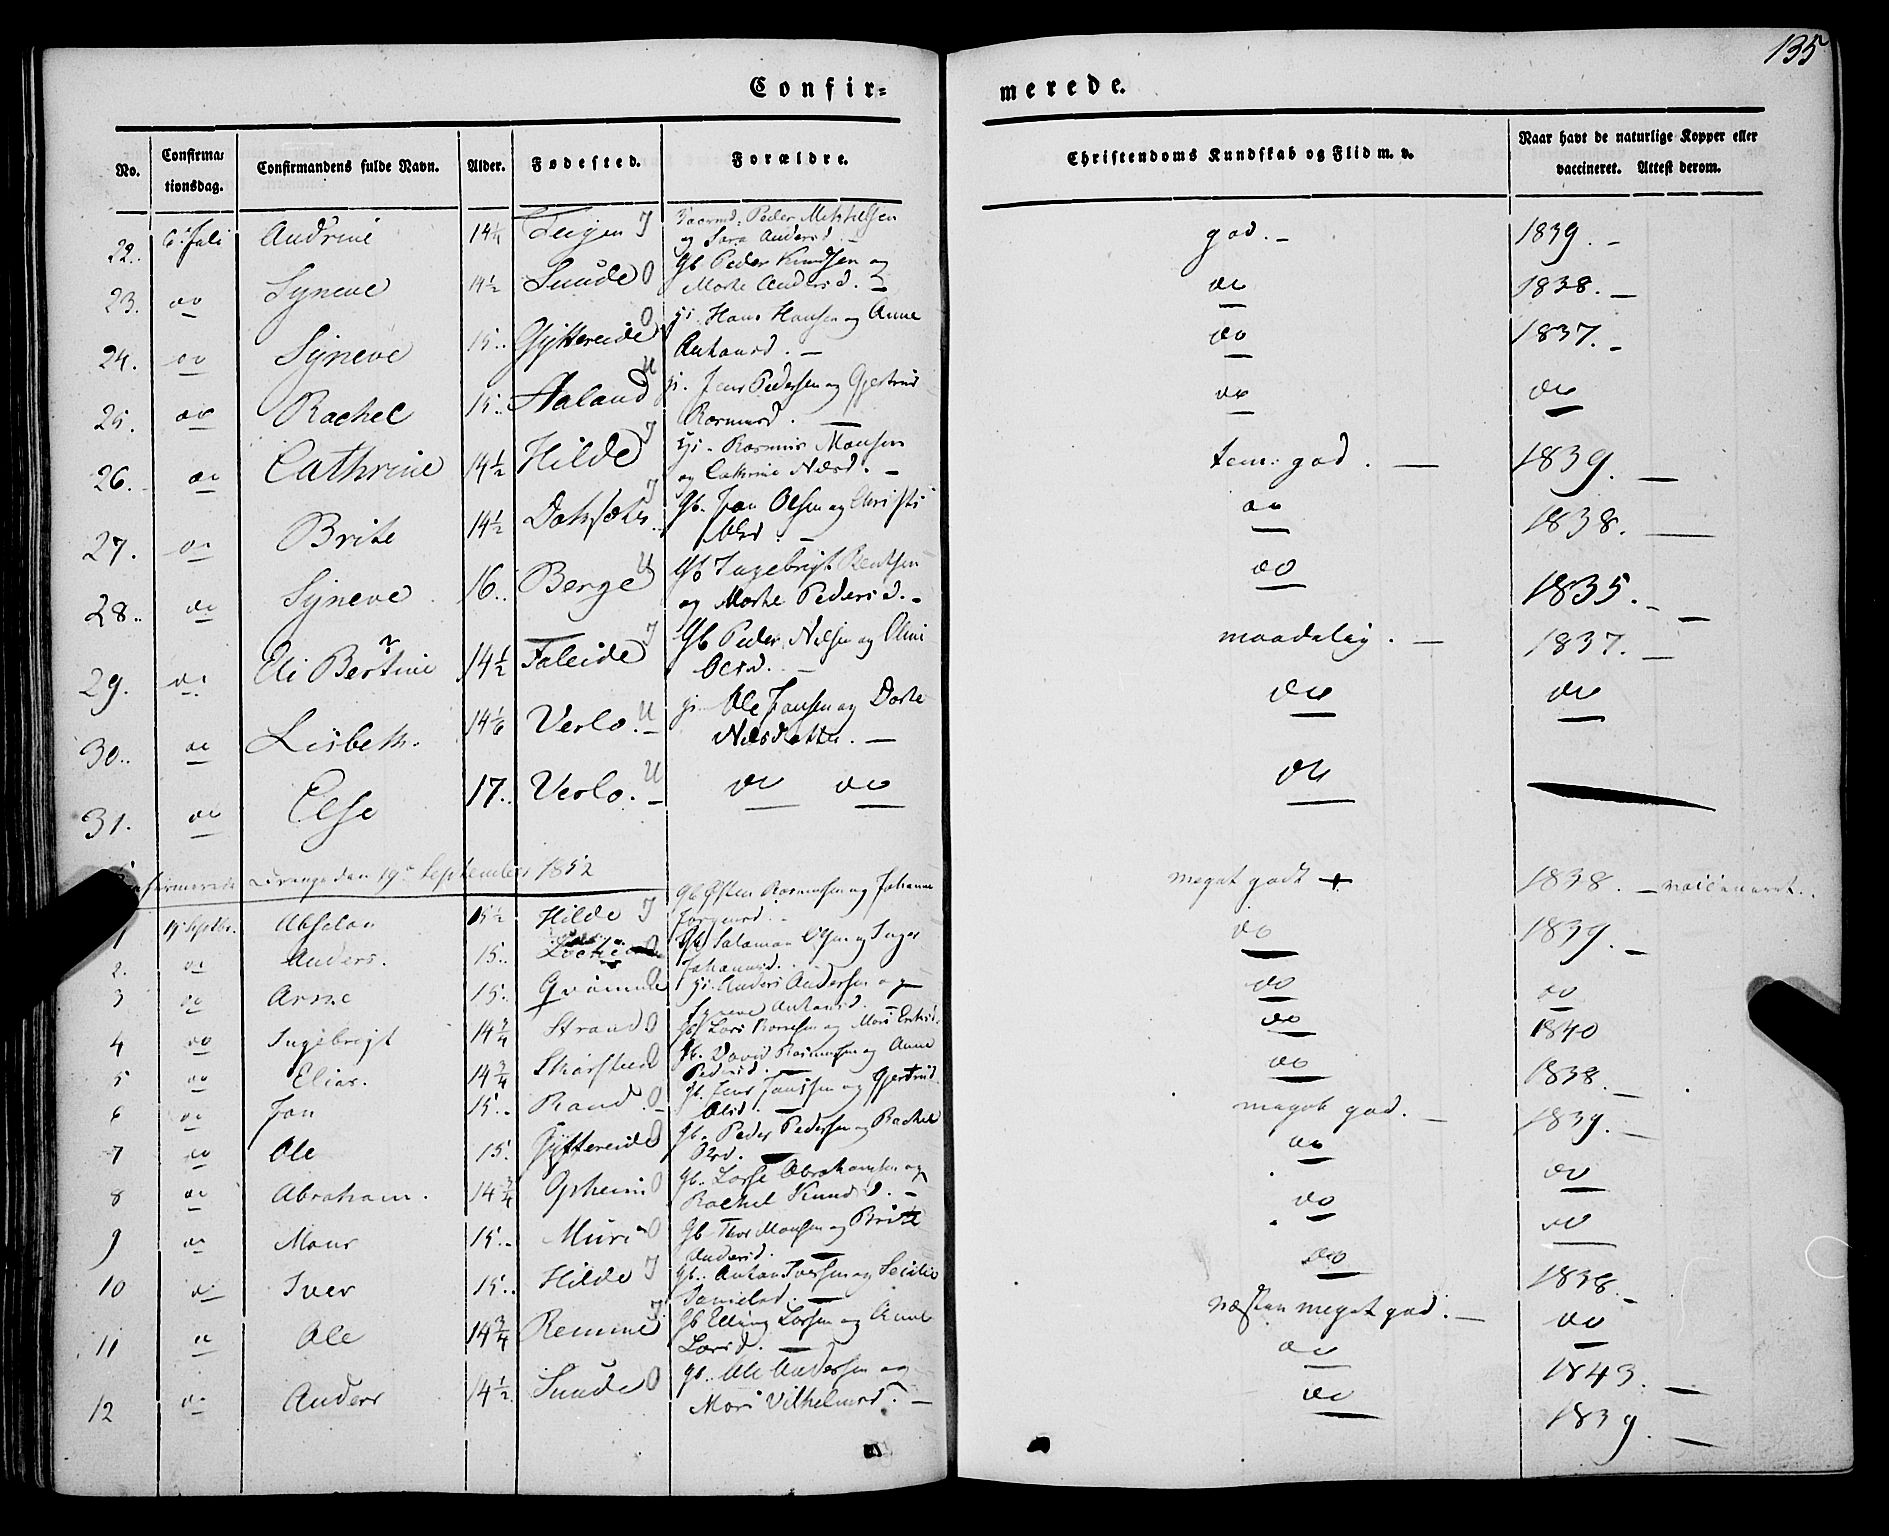 135
Confir= merede.
No. Confirma= tionsdag. Confirmandens fulde Navn. Alder. Fødested. Forældre. Christendoms Kundskab og Flid m. v. Naar havt de naturlige Kopper eller vaccineret. Attest derom.
22. 6. Juli Andrine 14¼ J Peder Mikkelsen og Sara Andersd. god. – 1839. –
23. do Syneve 14½ Sunde O Gb. Peder Knudsen og Marte Andersd. – do 1838. –
24. do Syneve 15.. Gyttereide O Gi. Hans Hansen og Anne Antonsd. – do 1837. –
25. do Rachel 15.. Aaland U gi. Jens Pedersen og Gjertrud Rasmusd. – do do
26. do Cathrine 14½ Hilde J Gi. Rasmus Monsen og Cathrine Nilsd. – tem: god. – 1839. –
27. do Brite 14½ J Gb. Jon Olsen og Christi Olsd. – do 1838. –
28.. do Syneve 16.. Berge U Gb Ingebrigt Bentsen og Marte Pedersd. – do 1835. –
29. do Eli Bertine 14½ Faleide J Gb Peder Nilsen og Oline Olsd. – maadelig. – 1837. –
30.. do Lisbeth. 14⅙ Verlo. U gi. Ole Jonsen og Dorte Nilsdatter. – do do
31. do Else 17.. Verlo. U do do do —
Confirmerede den 19de September 1852
1 19 Septbr. Absalon 15½ Hilde J Gb Østen Rasmusen og Johanne meget godt + 1838. – vaccineret..
2. do Anders. 15.. O Gb Salamon Olsen og Inger Johannesd. do 1839. –
3 do Arne 15.. O Gi. Anders Andersen og Syneve Antonsd. do do
4 do Ingebrigt 14¾ Strand O Gb Lars Rasmusen og Mari do 1840
5 do Elias. 14¾ O Gb. David Rasmusen og Anne Pedersd. – do 1838. –
6 do Jon 15.. Rand. O Gb. Jens Jonssen og Gjertrud Olsd. – meget god. – 1839. –
7 do Ole 15. Gyttereide O Gb. Peder Pedersen og Rachel Olsd. – do do
8 do Abraham. 14¾ Opheim O Gb. Lasse Abrahamsen og Rachel Knudsd. – do do
9 do Mons 15.. Muri O Gb Thor Monsen og Brite Andersd. – do 1838. –
10 do Iver 15.. Hilde J Gb. Anton Iversen og Secilie Danielsd. – næsten meget god. – do
11 do Ole 14¾ Remme J Gb Elling Larsen og Anne Larsd. – do 1843. –
12 do Anders 14½ Sunde O Gb. Ole Andersen og Mari Vilhelmsd. – do 1839. –